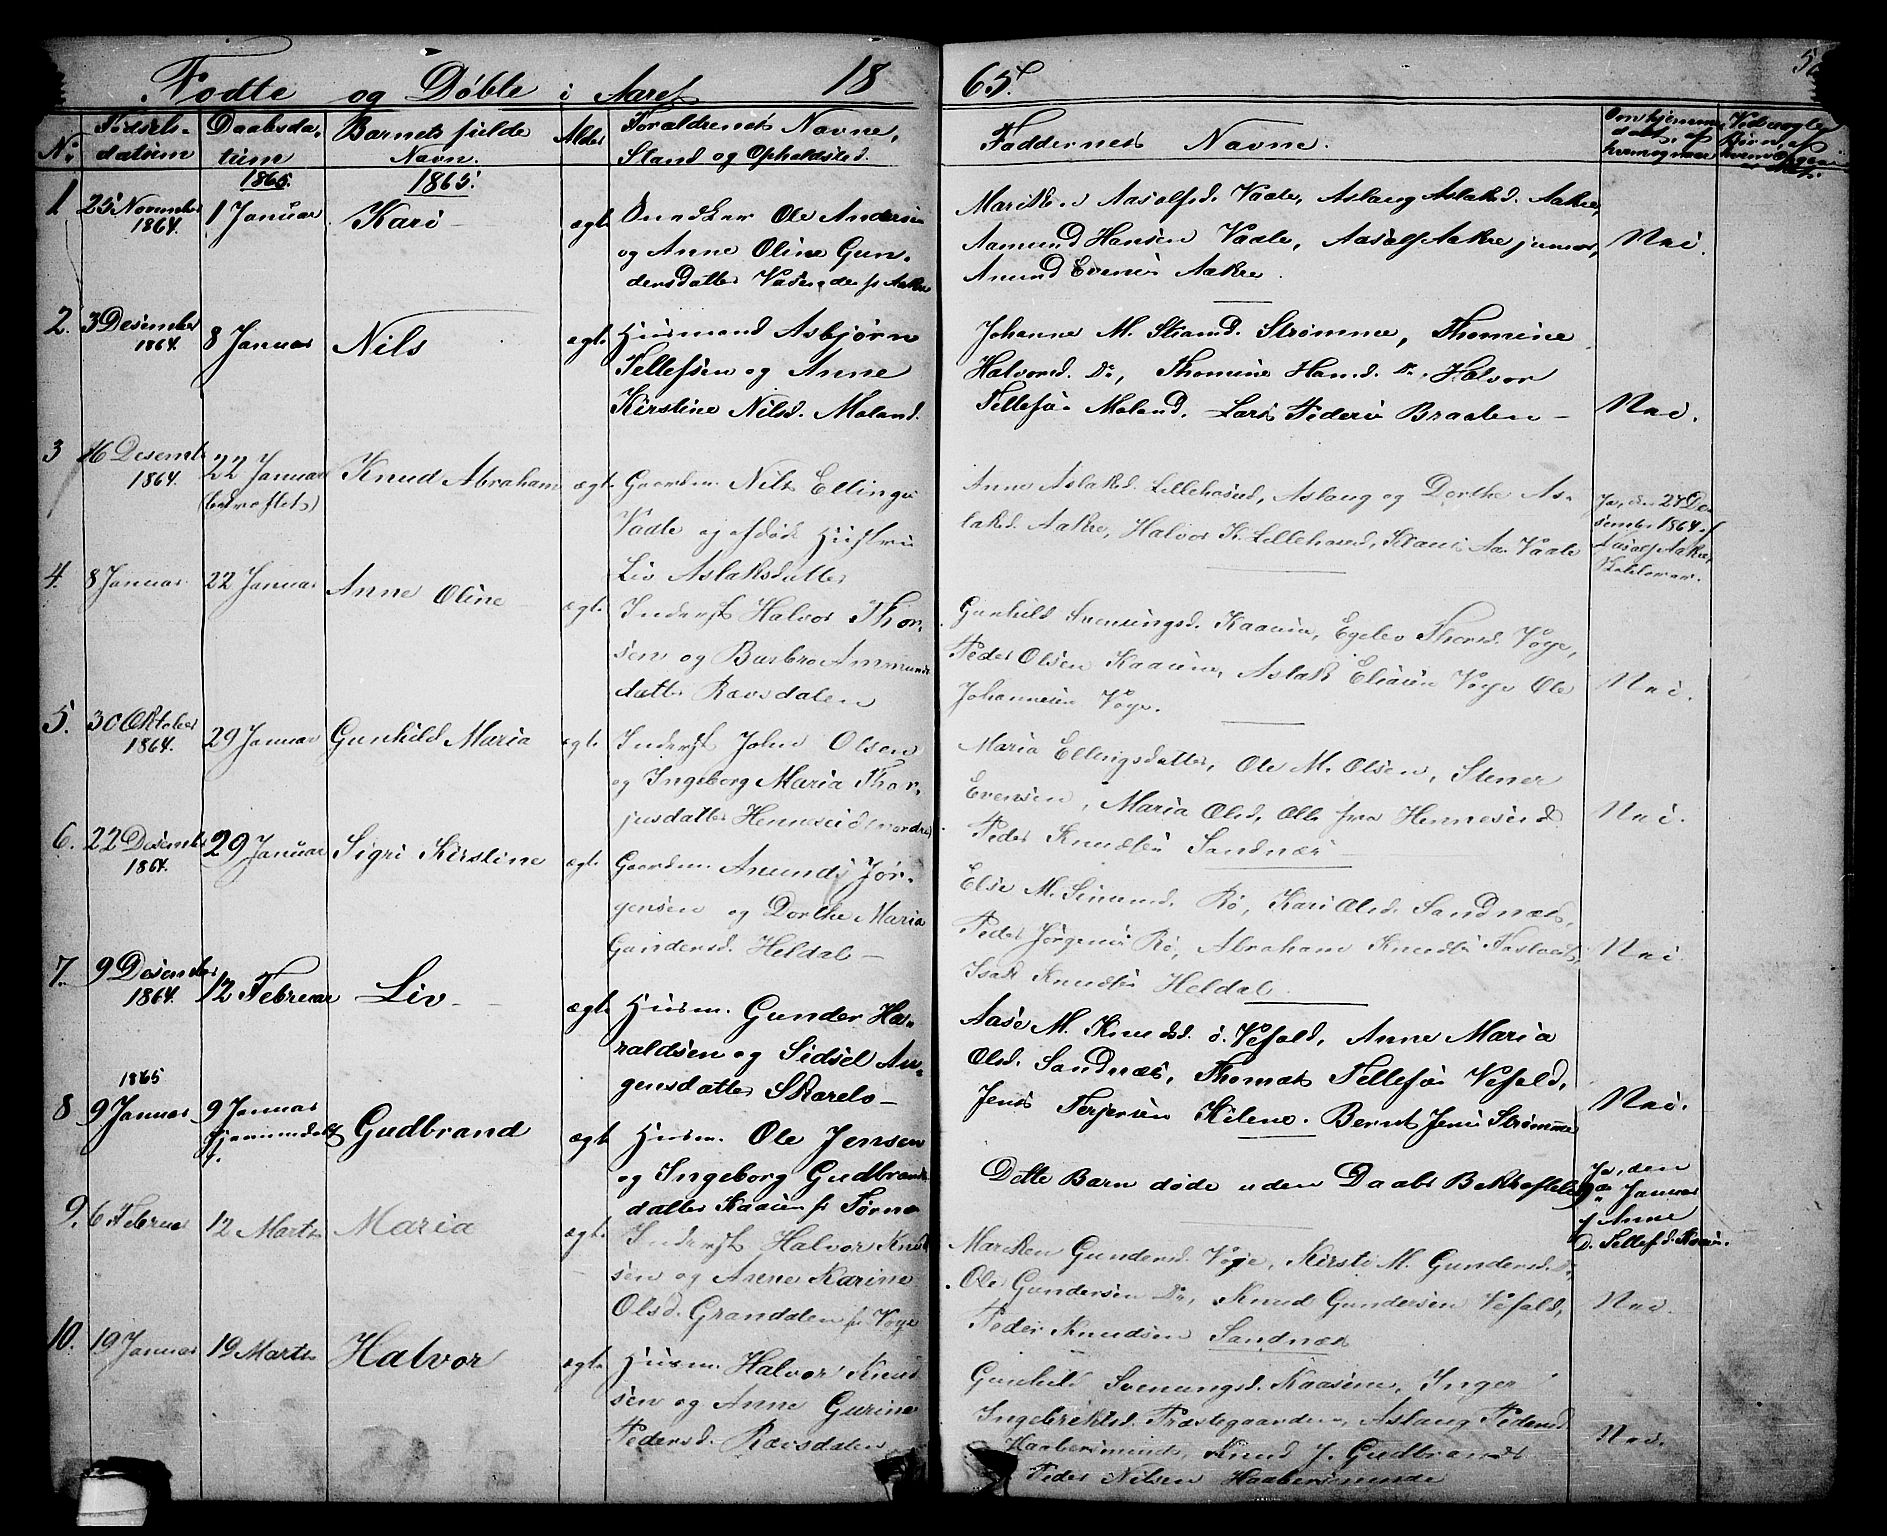 Födte og Döbte i Aaret 1865.
No
Födsels-
datum
Daabsda-
tum
Barnets fulde
Navn.
Alder
Forældrenes Navne,
Stand og Opholdsted.
Faddernes Navne.
1865.
1865.
1
25 November
1864.
1 Januar
Kari
ægte
Ole Andersen
og Anne Oline Gun-
dersdatter
Aasolfsd. Vaale, Aslaug Aslaksd. Aakre,
Aamund Hansen Vaale, Aasolf Aakre junior,
Anund Evensen Aakre.
Nei.
2.
3 Desember
1864.
8 Januar
Nils
ægte
Husmand Asbjørn
Tellefsen og Anne
Kirstine Nilsd. Moland.
Johanne M. Strømme, Thomine
Halvorsd. Do, Thomine Hansd. Do, Halvor
Tellefsen Moland. Lars Braaten
Nei.
3
16 Desember
1864.
22 Januar
(bekræftet)
Knud Abraham
ægte
Gaardm. Nils Ellingsen
Vaale og afdøde Hustru
Liv Aslaksdatter
Anne Aslaksd. Lillehaasud, Aslaug og Dorthe As-
laksd. Aakre, Halvor K. Lillehaasud, Vaale
Ja, den 27 De-
sember 1864 af
Aasolf Aakre,
4.
8 Januar
22 Januar
Anne Oline
ægte
Inderst Halvor Thor-
sen og Barbro Ammunds
datter Ravsdalen
Gunhild Svenungsd. Kaasin, Egelev Thorsd. Voje,
Peder Olsen Kaasin, Aslak Voje Ole
Johannesen Voje.
Nei.
5.
30 Oktober
1864.
29 Januar
Gunhild Maria
ægte
Inderst John Olsen
og Ingeborg Maria Thor-
jusdatter Henneseid nordre
Maria Ellingsdatter, Ole M. Olsen, Stener
Evensen, Maria Olsd, Alle fra Henneseid.
Peder Knudsen Sandnæs
Nei.
6.
22 Desember
1864.
29 Januar
Sigri Kirstine
ægte
Gaardm. Anund Jør-
gensen og Dorthe Maria
Gundersd. Heldal
Else M. Rø, Kari Olsd. Sandnæs,
Peder Jørgensen Rø, Abraham Knudsen
Isak Knudsen Heldal.
Nei.
7.
9 Desember
1864.
12 Februar
Liv
ægte
Husm. Gunder Ha-
raldsen og Sidsel An-
gensdatter Skarelo
Aase M. Knudsd. Vefald, Anne Maria
Olsd. Sandnæs, Thomas Tellefsen Vefald,
Jens Terjersen Kilene. Bernt Jensen Strømme
Nei.
1865
8
9 Januar
9 Januar
hjemmedøbt
Gudbrand
ægte
Husm. Ole Jensen
og Ingeborg Gudbrands
datter Kaasin
Dette Barn døde uden Daabs Bekræftelse
Ja, den
9de Januar
af Anne
9.
6 Februar
12 Marts
Maria
ægte
Inderst Halvor Knud-
sen og Anne Karine
Olsd. Grandalen fr Voje
Mariken Gundersd. Voje, Kirsti M. Gundersd. Do,
Ole Gundersen Do, Knud Gundersen Vefald,
Peder Knudsen Sandnæs
Nei.
10.
19 Januar
19 Marts
Halvor
ægte
Husm. Halvor Knud-
sen og Anne Gurine
Pedersd. Ravsdalen
Gunhild Svenungsd. Kaasin, Inger
Ingebriktsd. Præstegaarden, Aslaug Pedersd.
Haabersmunde, Knud J. Gudbrands
Peder Nilsen Haabersmunde
Nei.